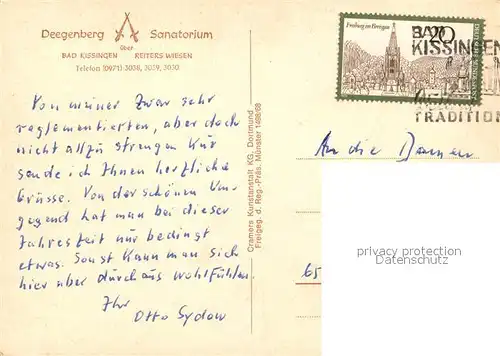 Deegenberg Sanatorium
über
BAD KISSINGEN REITERSWIESEN
Telefon (0971) 3038, 3039, 3030
Von meiner zwar sehr
reglementierten, aber doch
nicht allzu strengen Kur
sende ich Ihnen herzliche
Grüsse. Von der schönen Um-
gegend hat man bei dieser
Jahreszeit nur bedingt
etwas. Sonst kann man sich
hier aber durchaus wohlfühlen.
Ihr
Otto Sydow
Cramers Kunstanstalt KG, Dortmund
Freigeg. d. Reg.-Präs. Münster 1488/68
Freiburg im Breisgau
20
BAD
KISSINGEN
TRADITION
An die Damen
privacy protection
Datenschutz
65